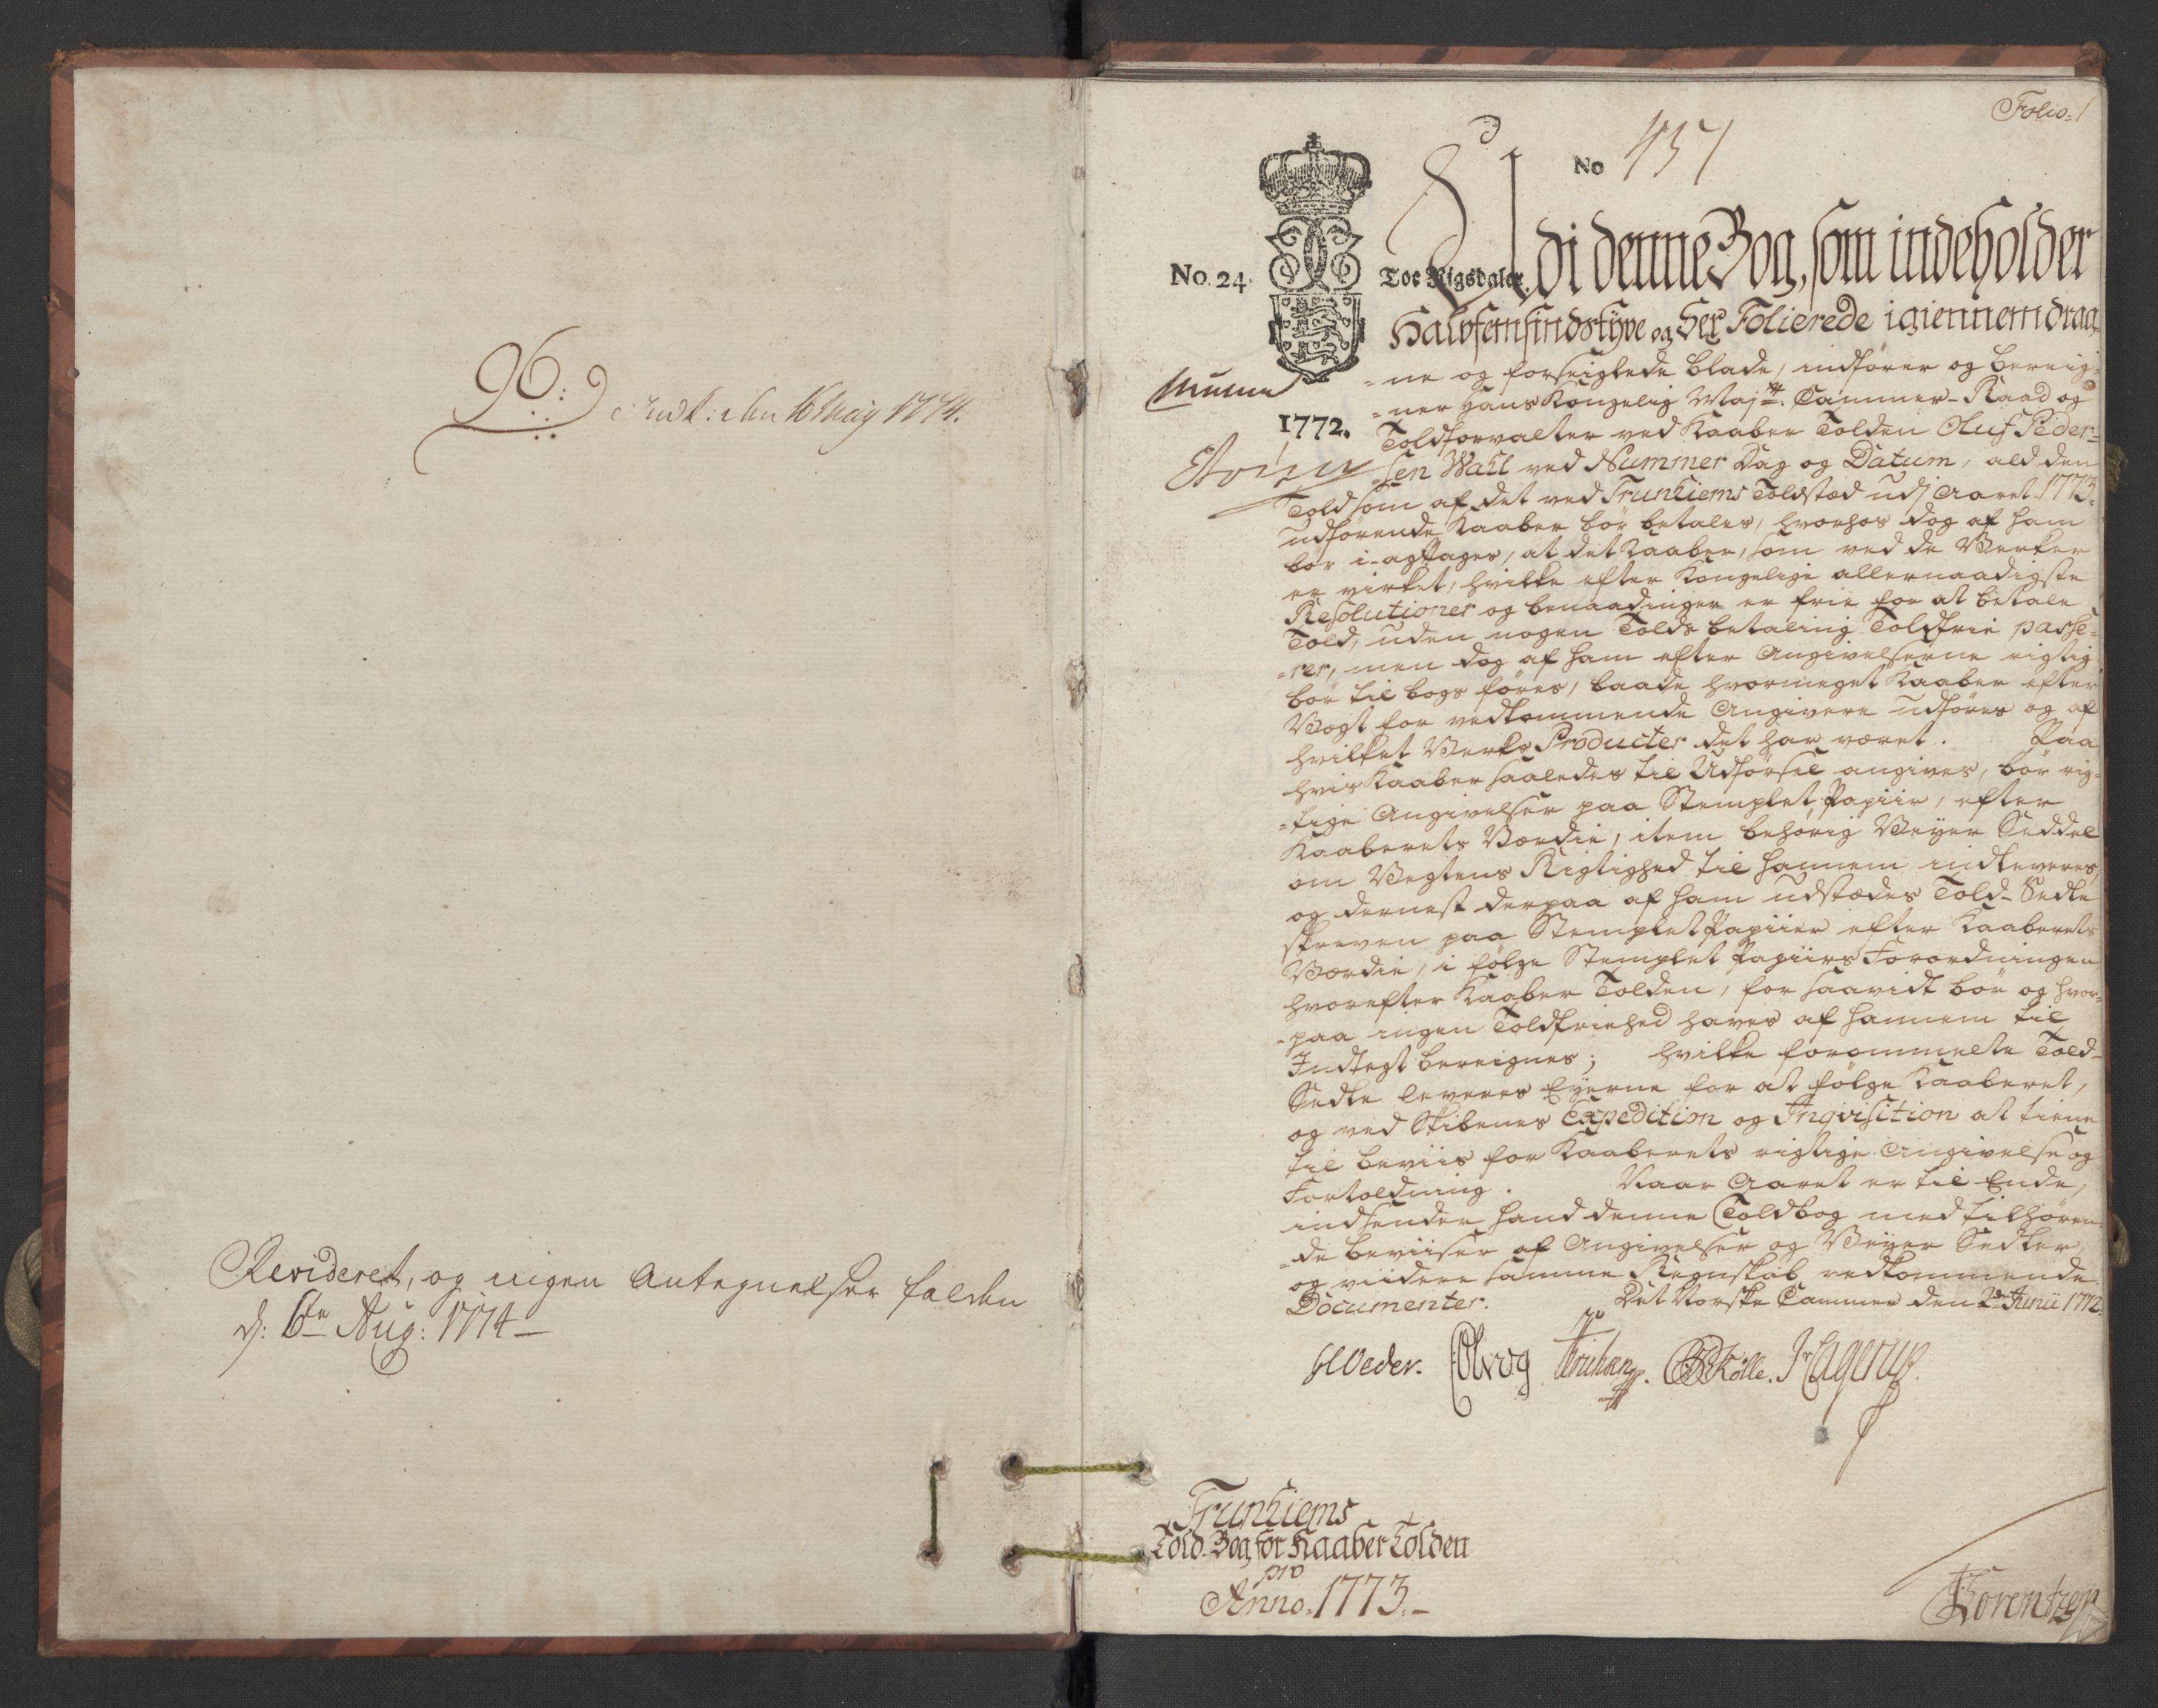 96:
Indk: den 16 Maij 1774.
Revideret, og ingen Antegnelser falden
d: 6te Aug: 1774
Folio: 1
No 457
No. 24.
Toe Rigsdaler.
1772.
Udi denne Bog, som indeholder
Halvfemsindstyve og Sex Folierede igiennemdrag-
-ne og forseiglede blade, indfører og bereig-
-ner Hans Kongelig Majts. Cammer-Raad og
Toldforvalter ved Kaaber Tolden Oluf Peder-
sen Wall ved Nummer Dag og Datum, ald den
Told som af det ved Trunhiems Toldsted udj Aaret 1773.
udførende Kaaber bør betales, hvorhos dog af ham
bør i-agttages, at det Kaaber, som ved de Verker
er virket, hvilke efter Kongelige allernaadigste
Resolutioner og benaadinger er frie for at betale
Told, uden nogen Tolds betaling Toldfrie passe-
-rer, men dog af ham efter Angivelserne rigtig
bør til bogs føres, baade hvormeget Kaaber efter
Vegt for vedkommende Angivere udføres og af
hvilket Verks Producter det har været. Paa
hvis Kaaber saaledes til Udførsel angives, bør rig-
-tige Angivelser paa Stemplet Papiir, efter
Kaaberets Værdie, item behørig Veyer Seddel
om Vegtens Rigtighed til hannem indleveres,
og dernest derpaa af ham udstædes Told-Sedle
skreven paa Stemplet Papiir efter Kaaberets
Værdie, i følge Stemplet Papiirs Forordningen
hvorefter Kaaber Tolden, for saavidt bør og hvor-
-paa ingen Toldfriehed haves af hannem til
Indtegt bereignes; hvilke forommelte Told-
Sedle leveres Eyerne for at følge Kaaberet,
og ved Skibenes Expedition og Inqvisition at tiene
til beviis for Kaaberets rigtige Angivelse og
Fortoldning. Naar Aaret er til Ende,
indsender hand denne Toldbog med tilhøren-
-de beviiser af Angivelser og Veyer Sedler,
og viidere samme Regnskab vedkommende
Documenter. Det Norske Cammer den 2den Junii 1772.
Weder.
Kølle. Hagerup.
Trunhiems
Told-Bog for Kaaber Tolden
pro
Anno. 1773.
Lorentzen